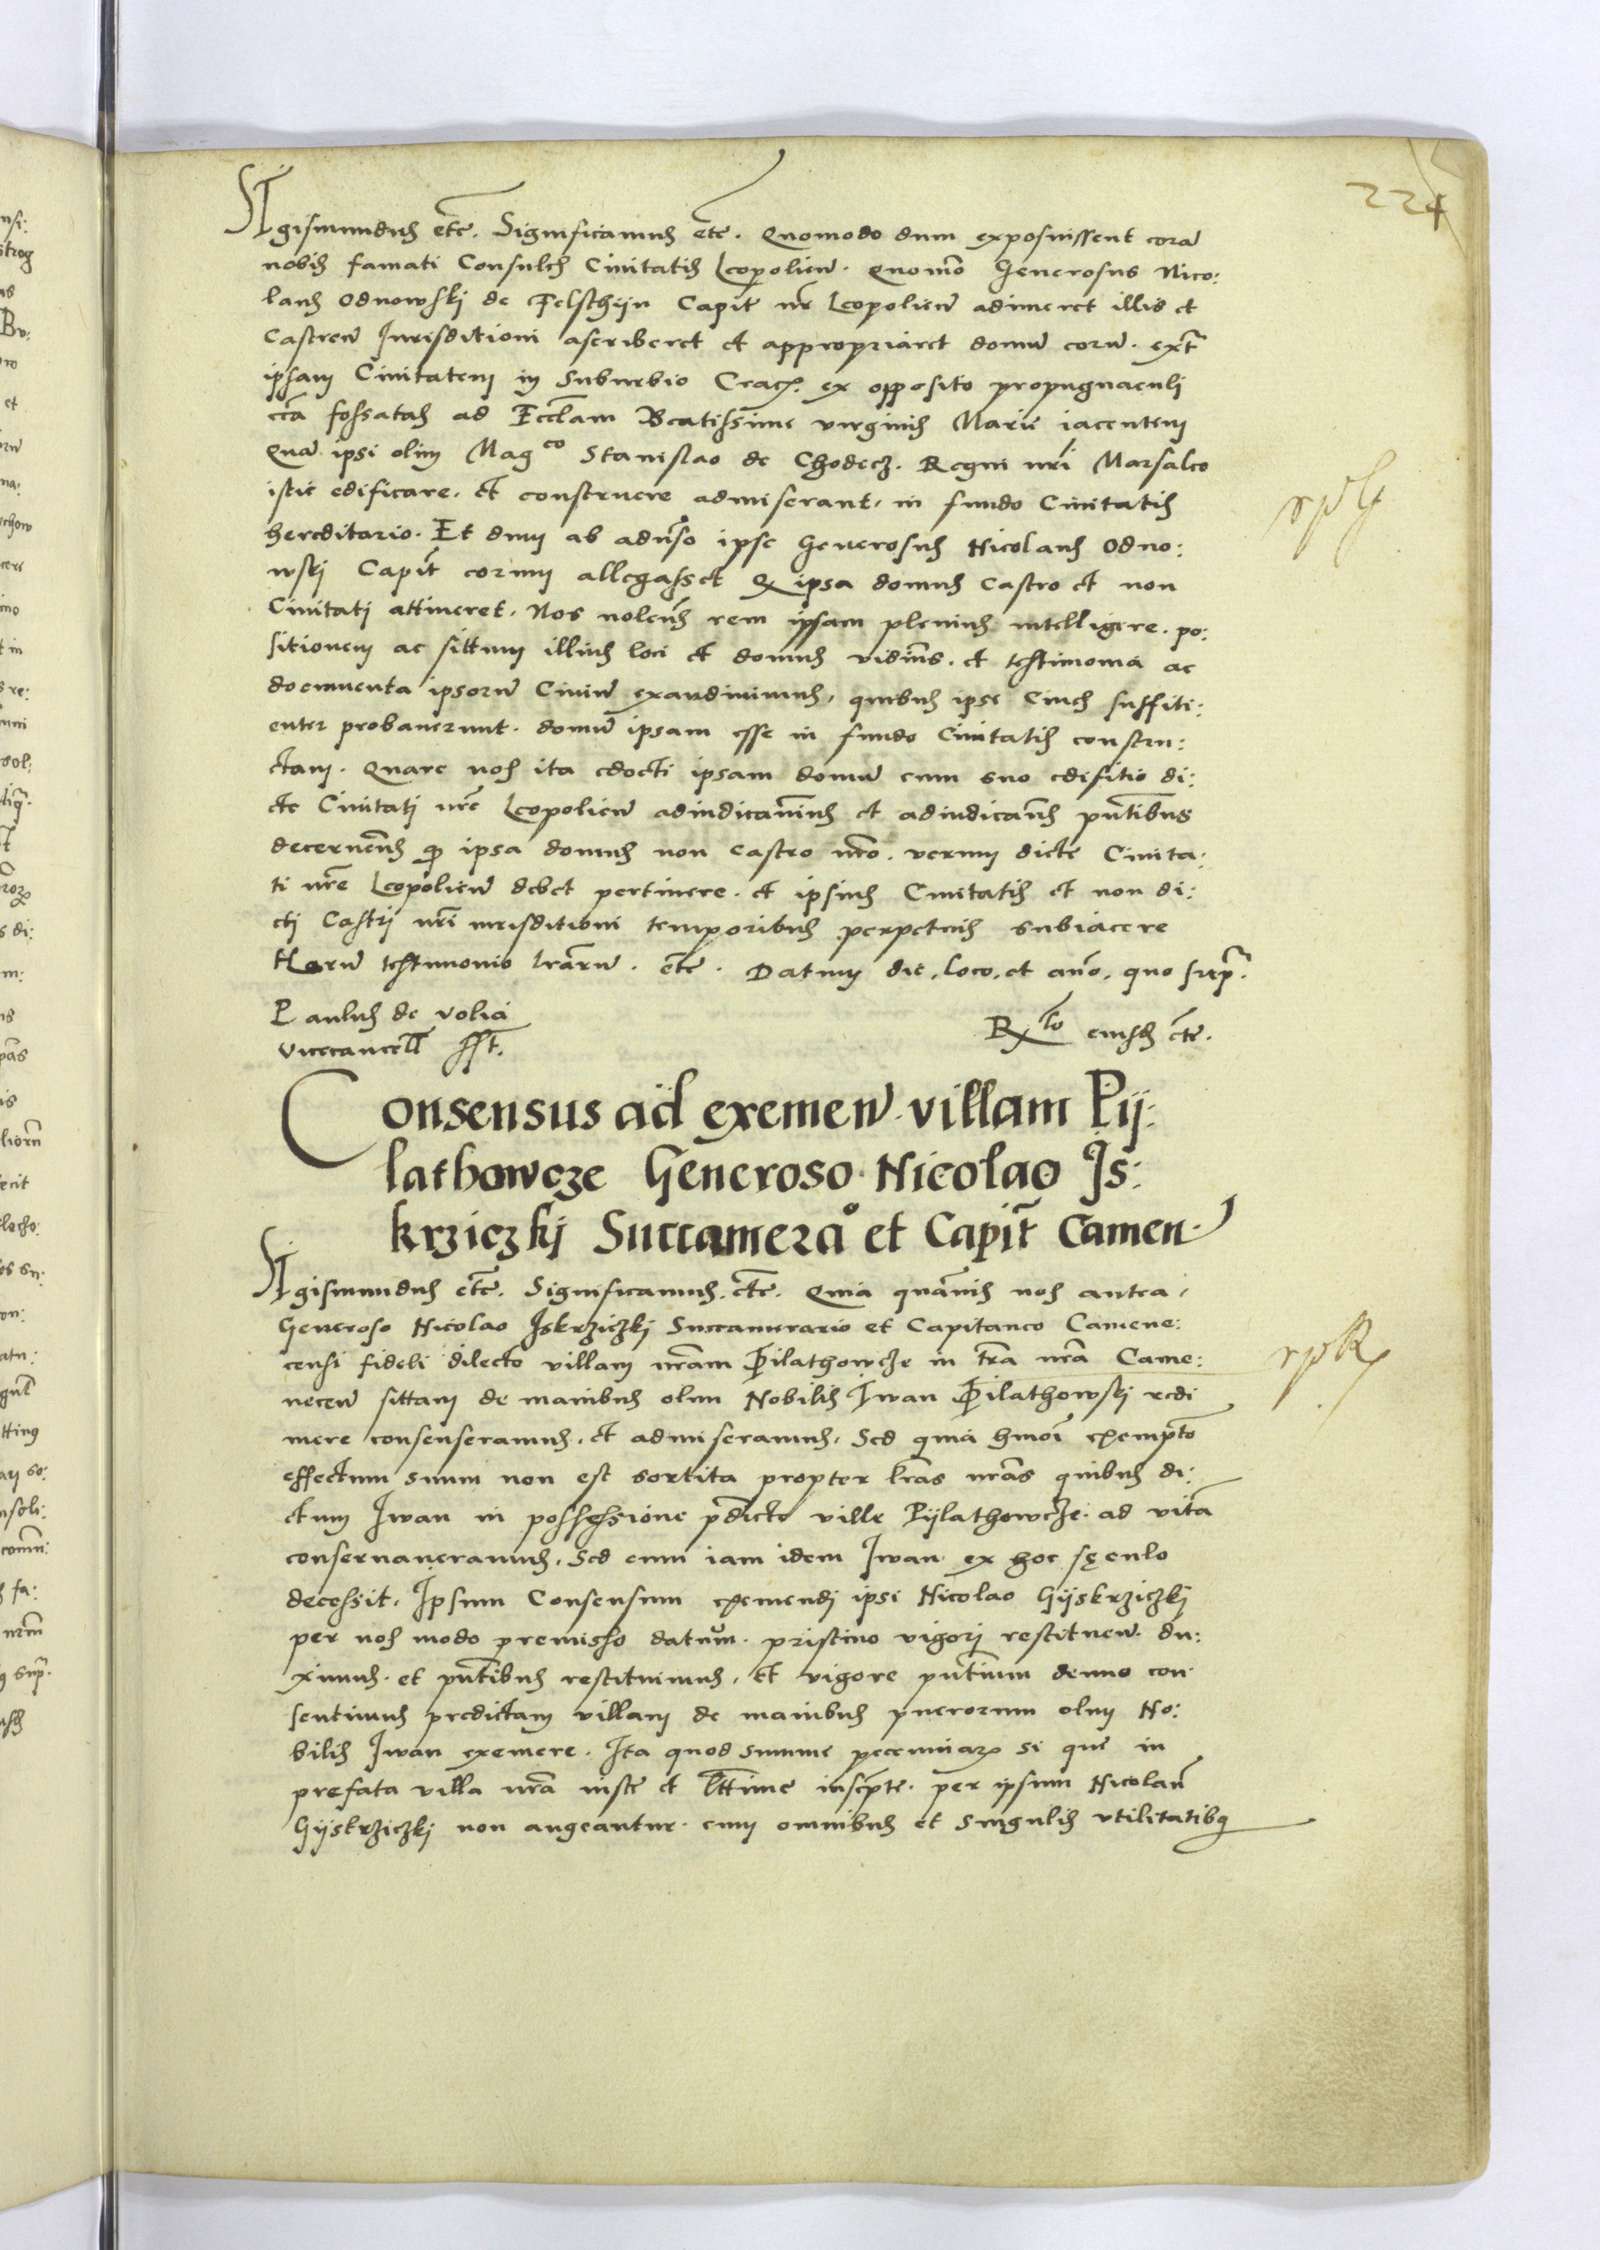 224
Sigismundus etc. Significamus etc. Quomodo dum exposuissent corā
nobis famati Consules Civitatis Leopolieñ. quomō Generosus Nico:
laus Odnowskj de Felschtijn Capit nr̄ Leopolieñ adimeret illis et
Castreñ Jurisditioni ascriberet et appropriaret domū eorū. extra
ipsam Civitatem in Suburbio Crac. ex opposito propugnaculi
circa fossatas ad Eccl̄am Beatissime virginis Marie iacentem
Quā ipsi olim Magco Stanislao de Chodecz. Regni nr̄i Marsalco
istic edificare. et construere admiserant. in fundo Civitatis
hereditario. Et dum ab adu͂so ipse Generosus Nicolaus Odno:
wskj Capit̄ eorum allegasset Q ipsa domus Castro et non
Civitatj attineret. Nos volen̄s rem ipsam plenius intelligere. po:
sitionem ac sittum illius loci et domus vidimꝰ. et testimonia ac
documenta ipsorū Civiū exaudivimus. quibus ipse Cives suffiti:
enter probaverunt. domū ipsam esse in fundo Civitatis constru:
ctam. Quare nos ita edocti ipsam domū cum suo edifitio di:
cte Civitatj nr̄e Leopolieñ adiudicavimus et adiudicam̄s pn̄tibus
decernen̄s q̄ ipsa domus non castro nr̄o. verum dicte Civita:
ti nr̄e Leopolieñ debet pertinere. et ipsius Civitatis et non di:
ctj Castrj nr̄i iurisditioni temporibus perpetuis subiacere
Harū testimonio lr̄arū. etc. Datum die, loco, et an̄o, quo supra.
Paulus de Volia
Vicecancell̄ sst.
R̄tō eiusdē etc.
Consensus ad exemeñ villam Pij:
lathowcze Generoso Nicolao Js:
krziczkj Succamera° et Capit̄ Camen
Sigismundus etc. Significamus. etc. Quia quāvis nos antea.
Generoso Nicolao Jskrziczkj Succamerario et Capitaneo Camene:
censi fideli dilecto villam nr̄am Pilathowcze in tr̄a nr̄a Came:
neceñ sittam de manibus olim Nobilis Jwan Pilathowskj redi
mere consenseramus. et admiseramus. Sed quia hm̄oi exempto
effectum suum non est sortita propter lr̄as nr̄as quibus di:
ctum Jwan in possessione p̄dicte ville Pijlathowcze ad vitā
conservaveramus. Sed cum iam idem Jwan ex hoc sęculo
decessit. Jpsum Consensum exemendj ipsi Nicolao Gijskrziczkj
per nos modo premisso datum. pristino vigorj restitueñ. du:
ximus. et pn̄tibus restituimus. et vigore pn̄tium denuo con
sentimus predictam villam de manibus puerorum olim No:
bilis Jwan exemere. Ita quod summe pecuniaꝝ si que in
prefata villa nr̄a iuste et l̄ttime inscripte. per ipsum Nicolaū
Gijskrziczkj non augeantur. cum omnibus et singulis utilitatibꝰ